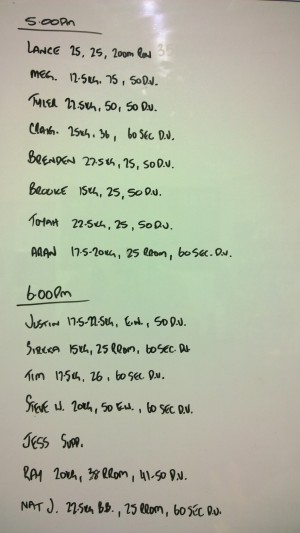 5.00pm
LANCE 25, 25, 200m Row 35
MEG. 12.5KG, 75, 50 D.U.
TYLER 22.5KG, 50, 50 D.U.
CRAIG. 25KG, 36, 60 SEC D.U.
BRENDEN 27.5KG, 25, 50 D.U.
BROOKE 15KG, 25, 50 D.U.
22.5KG, 25, 50 D.U.
ARAN 17.5-20KG, 25 RROM, 60 SEC. D.U.
6.00pm
JUSTIN 17.5-22.5KG, E.W., 50 D.U.
15KG, 25 RROM, 60 SEC. DU
TIM 17.5KG, 26, 60 SEC D.U.
STEVE W. 20KG, 50 E.W., 60 SEC D.U.
JESS SUPP.
RAY 20KG, 38 RROM, 41-50 D.U.
NAT J. 22.5KG B.B., 25 RROM, 60 SEC D.U.